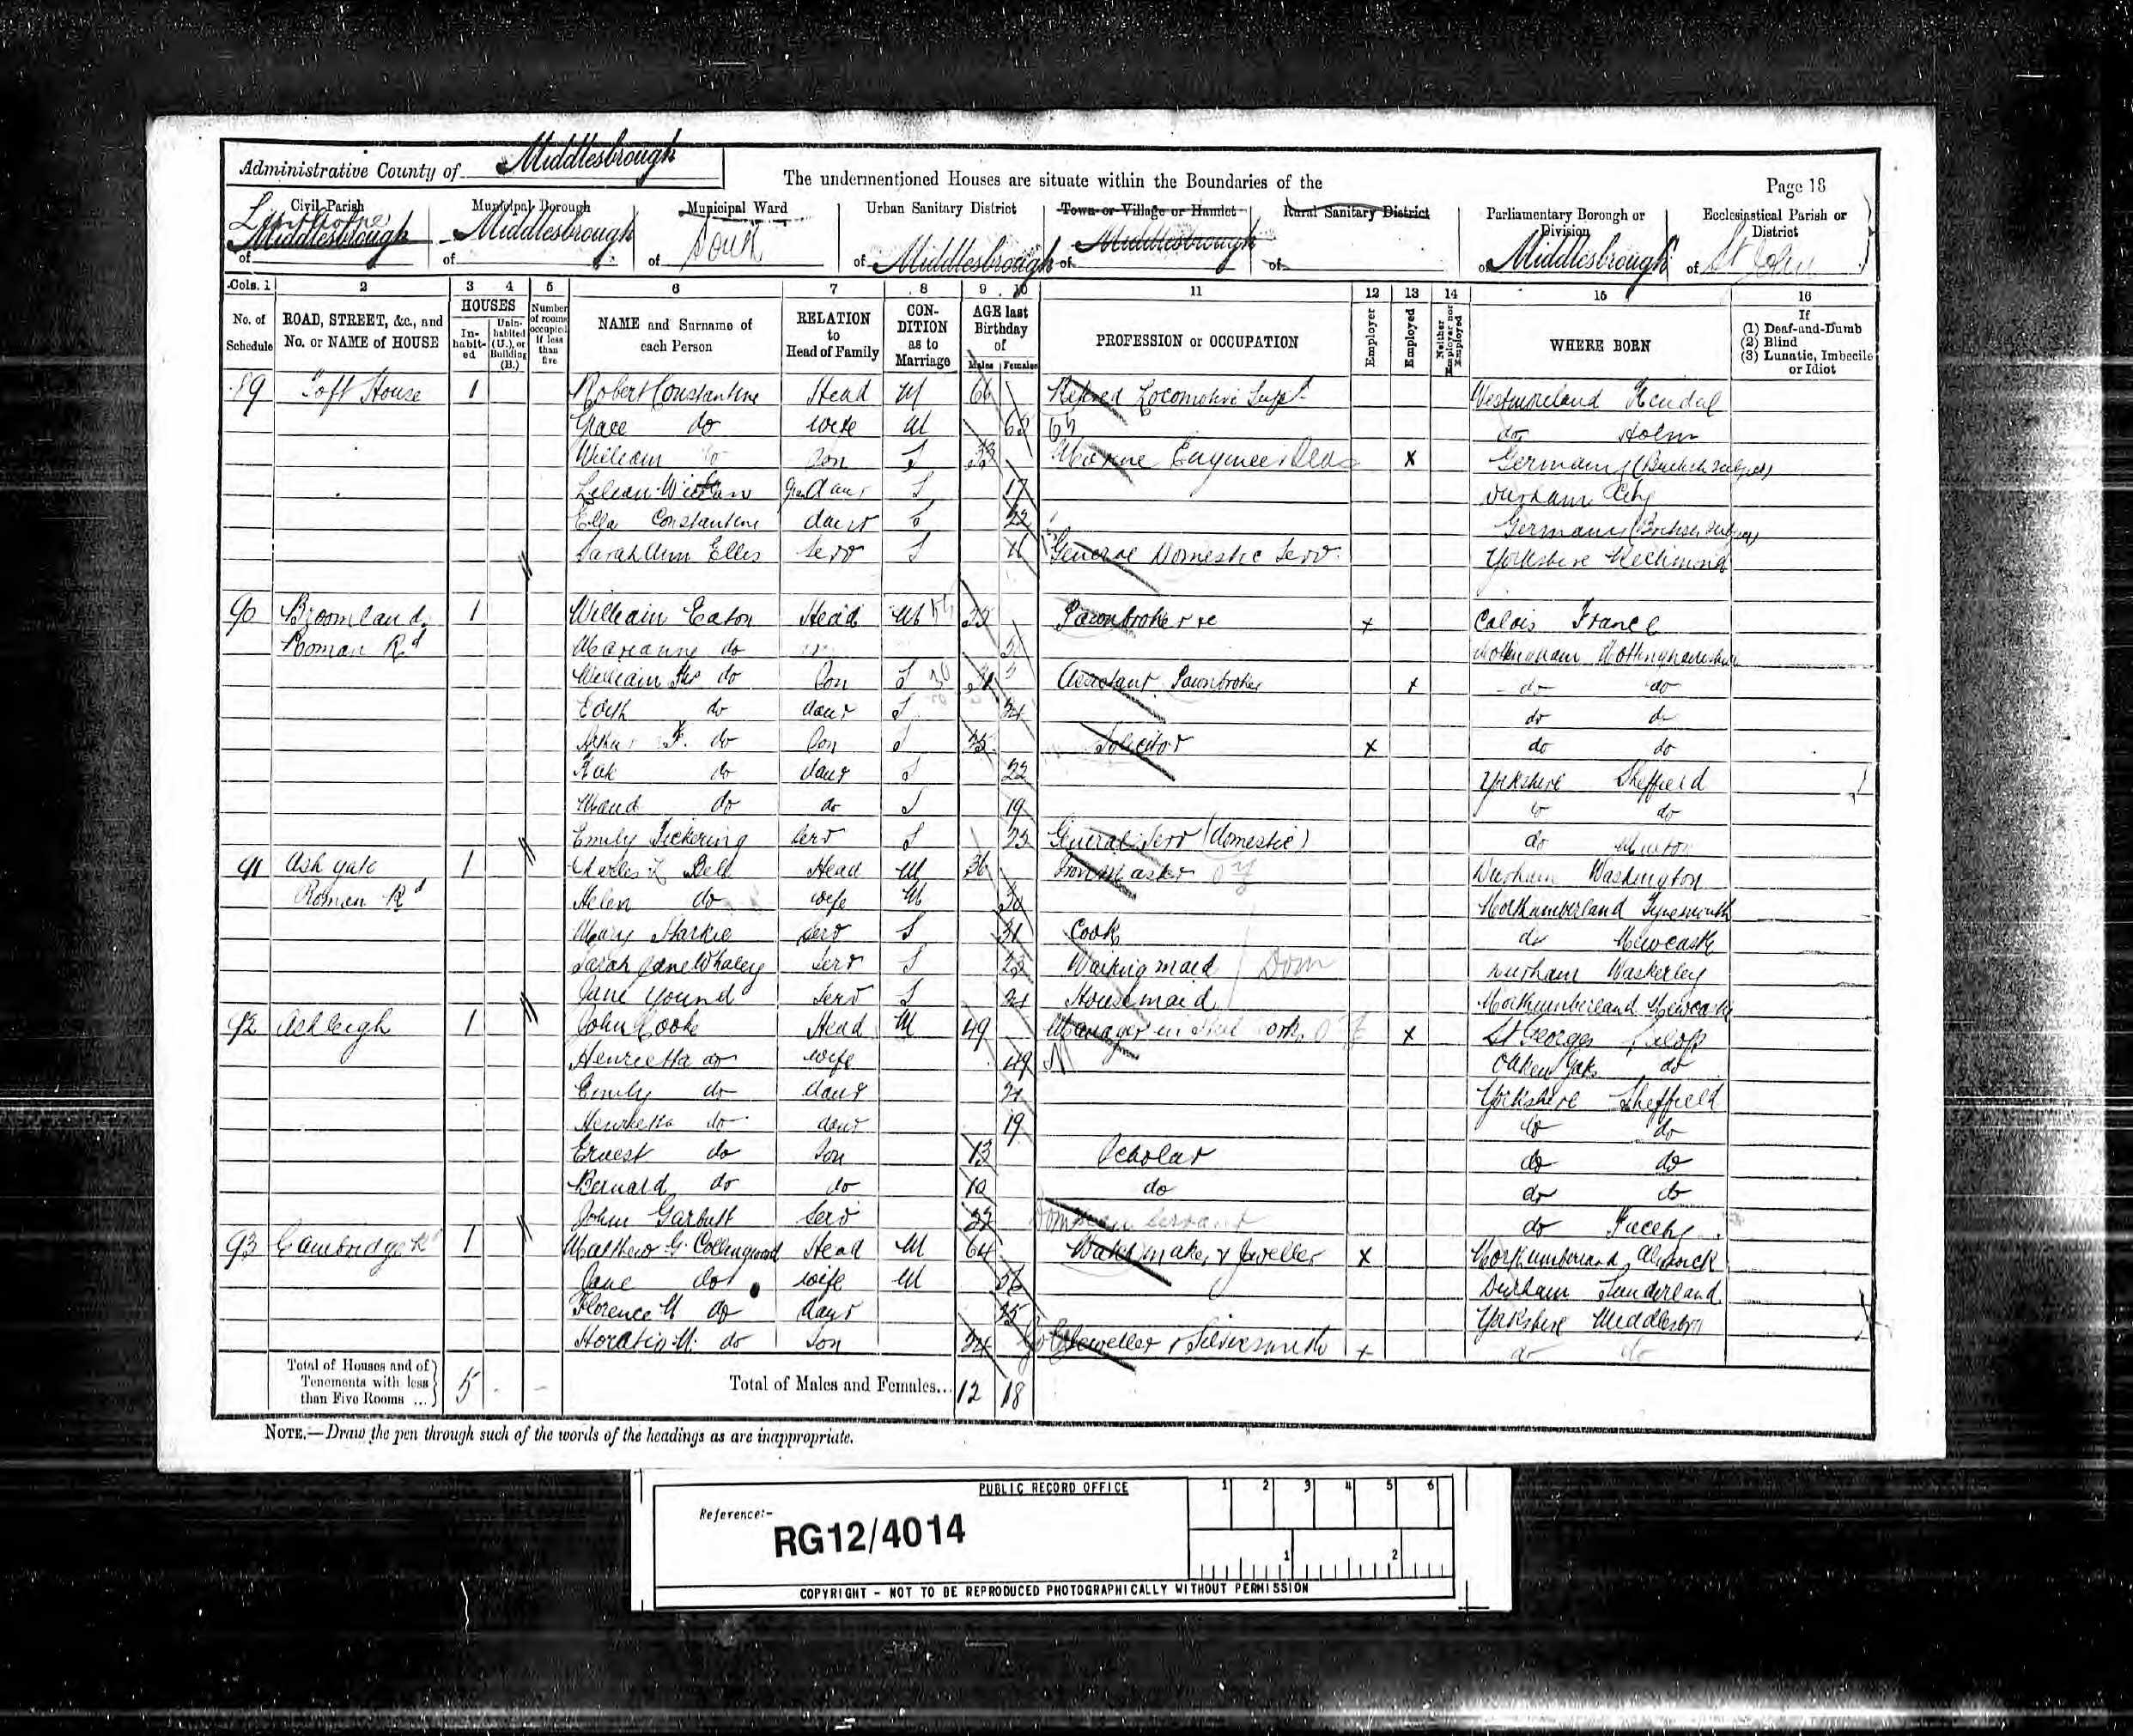 Administrative County of Middlesbrough
The undermentioned Houses are situate within the Boundaries of the
Page 18
Civil Parish Municipal Borough Municipal Ward Urban Sanitary District Town or Village or Hamlet Rural Sanitary District Parliamentary Borough or Division Ecclesiastical Parish or District
Linthorpe
of Middlesbrough of Middlesbrough of South of Middlesbrough of Middlesbrough of of Middlesbrough of St John
Cols. 1 2 3 4 5 6 7 8 9 10 11 12 13 14 15 16
No. of Schedule ROAD, STREET, &c., and No. or NAME of HOUSE HOUSES Inhabited Uninhabited (U.), or Building (B.) Number of rooms occupied if less than five NAME and Surname of each Person RELATION to Head of Family CONDITION as to Marriage AGE last Birthday of Males Females PROFESSION or OCCUPATION Employer Employed Neither Employer nor Employed WHERE BORN If (1) Deaf-and-Dumb (2) Blind (3) Lunatic, Imbecile or Idiot
89 Toft House 1 Robert Constantine Head M 66 Retired Locomotive Supt Westmoreland Kendal
Grace do wife M 68 do Holm
William do Son S 33 Marine Engineer X Germany (British Subject)
Lilian Granddaur S 17 Durham City
Ella Constantine daur S 22 Germany (British Subject)
Sarah Ann Ellis Serv S General Domestic Serv. Yorkshire
90 Broomlands 1 William Eaton Head M Pawnbroker &c X Calais France
Roman Rd Marianne do Nottingham Nottinghamshire
William do Son S Assistant Pawnbroker X do do
Edith do daur S 24 do do
Arthur F. do Son S Solicitor X do do
Kate do daur S 22 Yorkshire Sheffield
Maud do do S 19 do do
Emily Pickering Serv S General Serv (domestic) do
91 Ash gate 1 Charles L Bell Head M 36 Iron Master Durham Washington
Roman Rd Helen do wife M 30 Northumberland Tynemouth
Mary Starkie Serv S 31 Cook do Newcastle
Sarah Jane Whaley Serv S 23 Waiting maid Dom Durham Waskerley
Jane Young Serv S 21 Housemaid Northumberland Newcastle
92 Ashleigh 1 John Cooke Head M 49 Manager in Steel Works X St Georges Salop
Henrietta do wife 49 Oaken Gates do
Emily do daur 21 Yorkshire Sheffield
Henrietta do daur 19 do do
Ernest do Son 13 Scholar do do
Bernard do do 10 do do do
John Garbutt Serv 22 Servant do Faceby
93 Cambridge Rd 1 Matthew G. Collingwood Head M 64 Watchmaker & Jeweller X Northumberland Alnwick
Jane do wife M 56 Durham Sunderland
Florence M do daur 25 Yorkshire Middlesbro
Horatio M. do Son 24 Jeweller & Silversmith X do do
Total of Houses and of Tenements with less than Five Rooms ... 5 - - Total of Males and Females... 12 18
NOTE.—Draw the pen through such of the words of the headings as are inappropriate.
PUBLIC RECORD OFFICE
1 2 3 4 5 6
Reference:-
RG12/4014
1 2
COPYRIGHT - NOT TO BE REPRODUCED PHOTOGRAPHICALLY WITHOUT PERMISSION